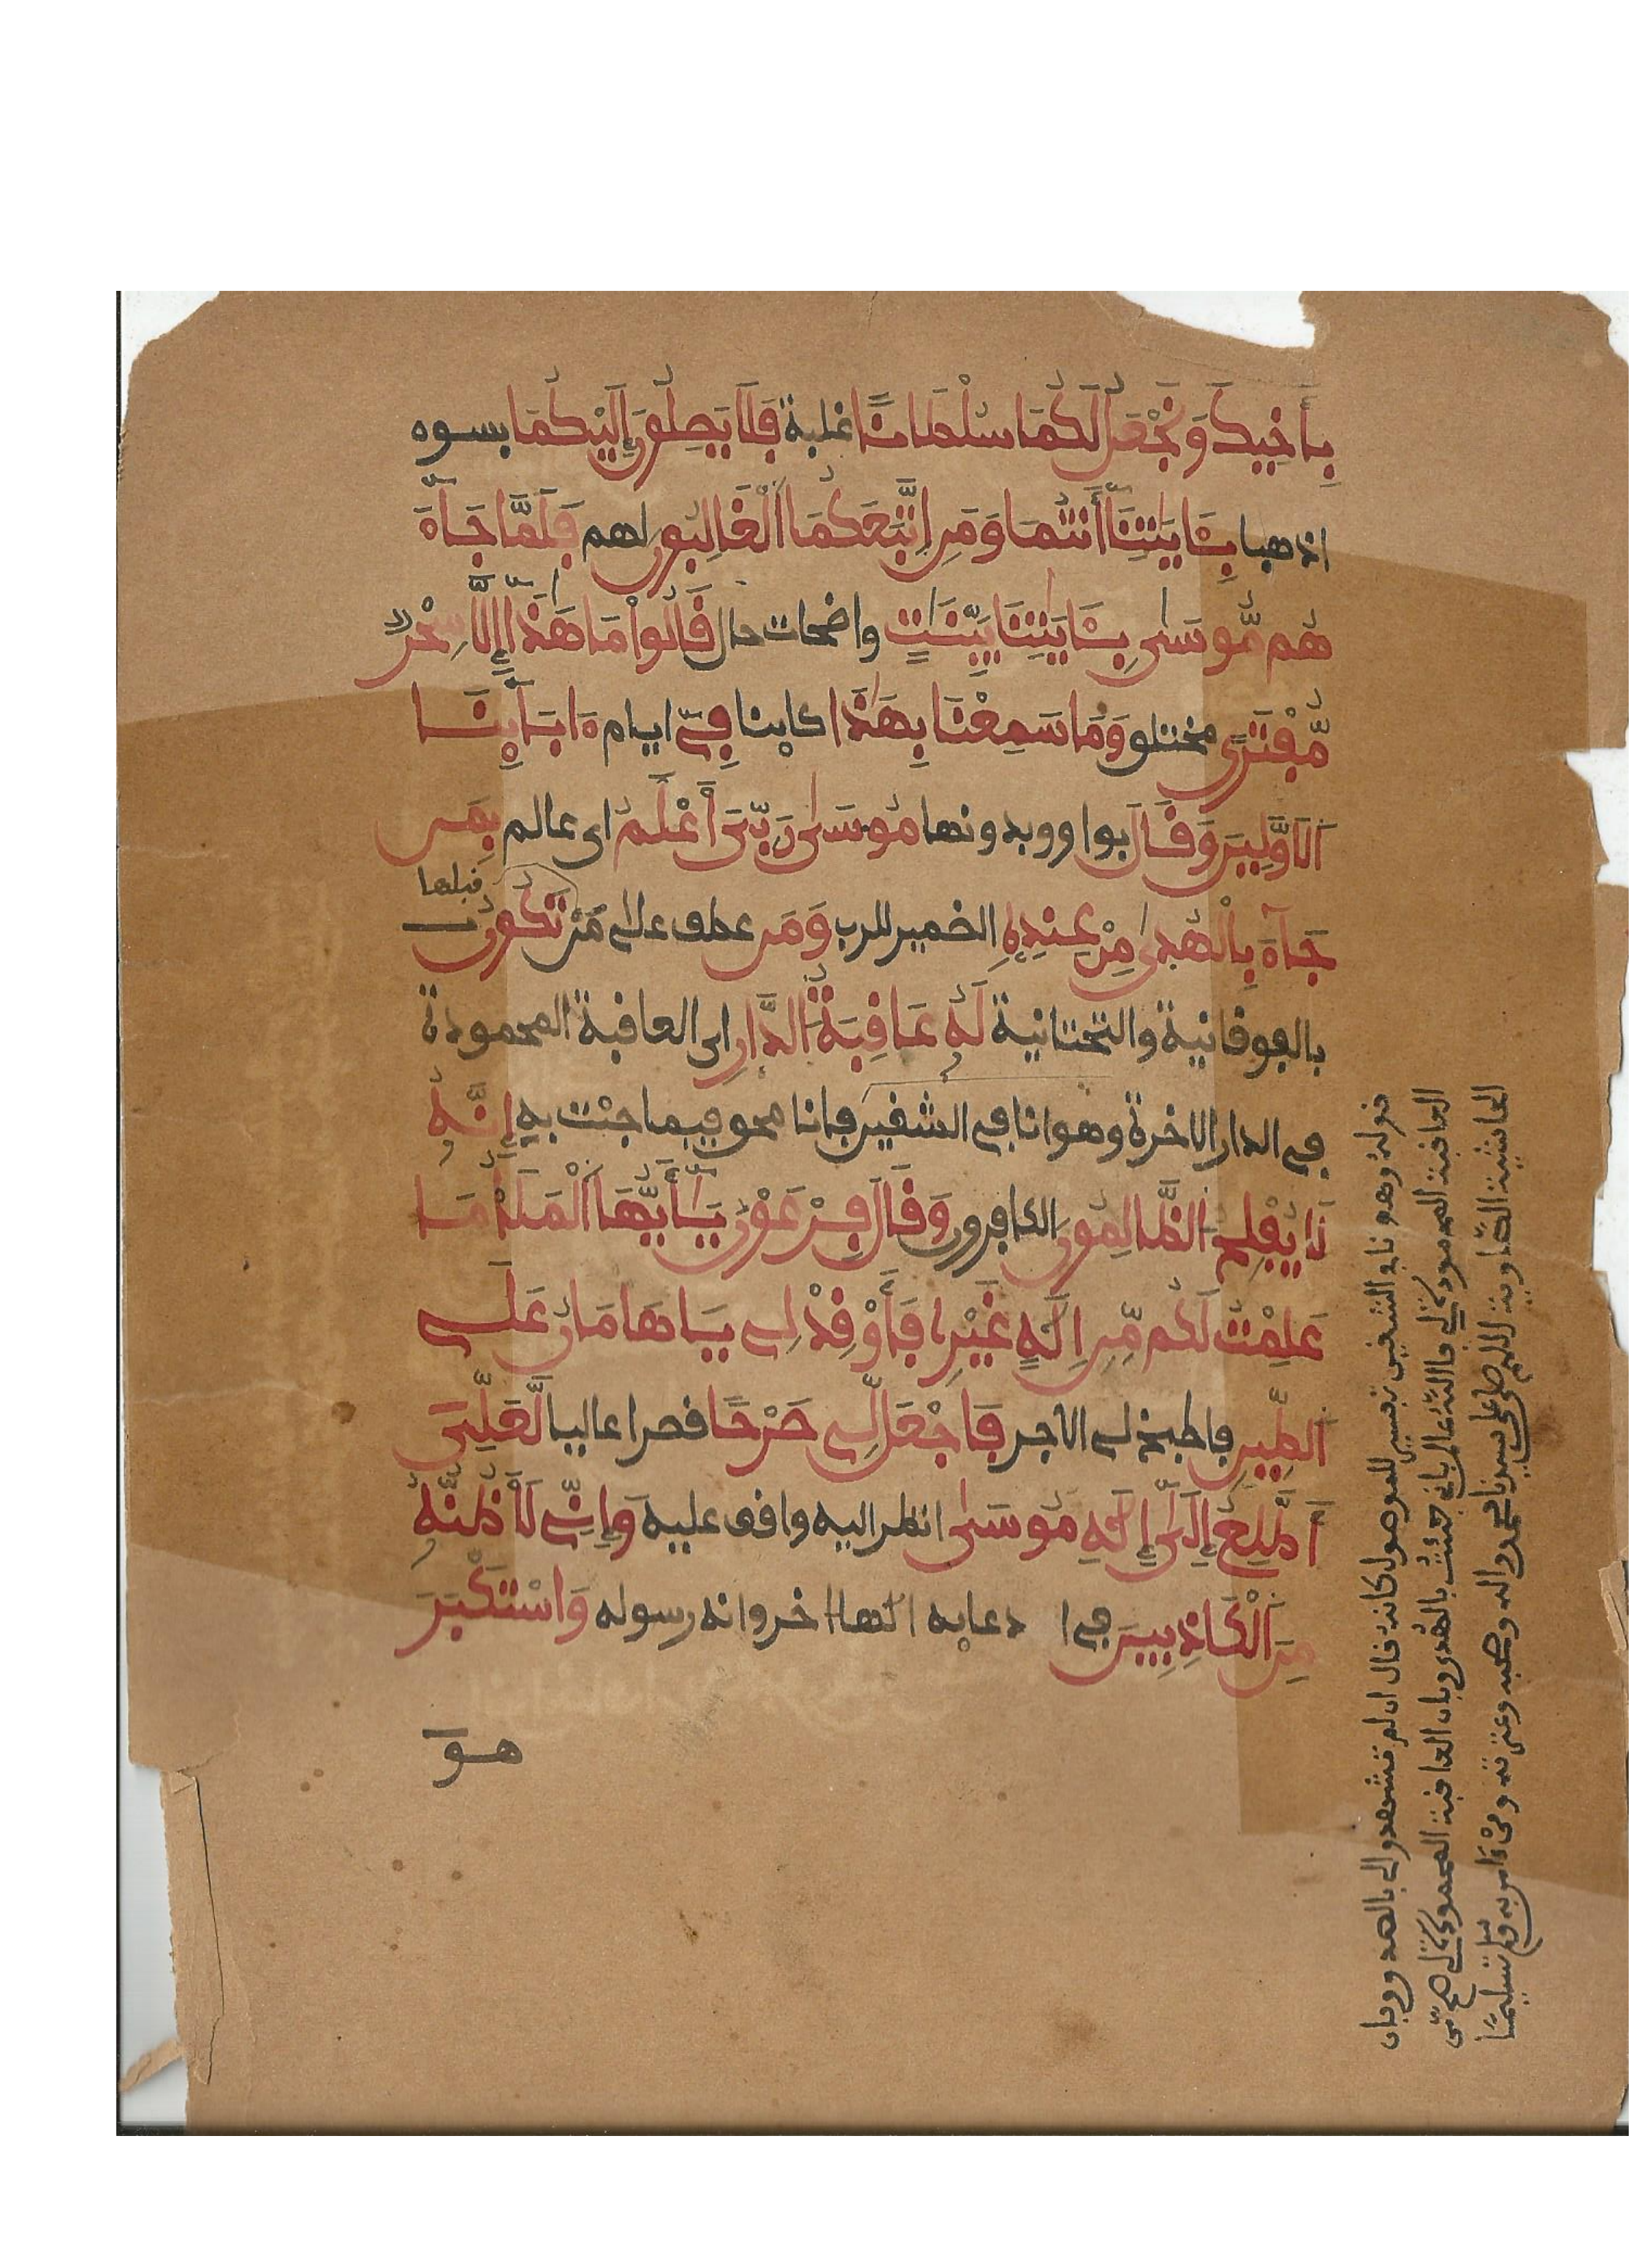 بِأَخِيكَ وَنَجْعَلُ لَكُمَا سُلْطَانًا غلبة فَلَا يَصِلُونَ إِلَيْكُمَا بسوء
اذهبا بِـَٔايَٰتِنَا أَنتُمَا وَمَنِ اتَّبَعَكُمَا الْغَالِبُونَ لهم فَلَمَّا جَاءَ
هُم مُّوسَىٰ بِـَٔايَٰتِنَا بَيِّنَٰتٍ واضحات حال قَالُواْ مَا هَٰذَا إِلَّا سِحْرٌ
مُّفْتَرًى مختلق وَمَا سَمِعْنَا بِهَٰذَا كاينا فِي ايام ءَابَآئِنَا
الْأَوَّلِينَ وَقَالَ بواو وبدونها مُوسَىٰ رَبِّيَ أَعْلَمُ اى عالم بِمَن
جَآءَ بِالْهُدَىٰ مِنْ عِندِهِ الضمير للرب وَمَن عطف على مَن تَكُونُ
قبلها
بالفوقانية والتحتانية لَهُ عَاقِبَةُ الدَّارِ اى العاقبة المحمودة
في الدار الاخرة وهو انا في الشقين فانا محق فيما جئت به إِنَّهُ
لَا يُفْلِحُ الظَّالِمُونَ الكافرون وَقَالَ فِرْعَوْنُ يَـٰٓأَيُّهَا الْمَلَأُ مَا
عَلِمْتُ لَكُم مِّنِ إِلَٰهٍ غَيْرِي فَأَوْقِدْ لِي يَـٰهَامَانُ عَلَى
الطِّينِ فاطبخ لي الاجر فَاجْعَل لِّي صَرْحًا قصرا عاليا لَّعَلِّي
أَطَّلِعُ إِلَىٰ إِلَٰهِ مُوسَىٰ انظر اليه واقف عليه وَإِنِّي لَأَظُنُّهُ
مِنَ الْكَاذِبِينَ في ادعايه الها اخر وانه رسوله وَاسْتَكْبَرَ
هو
قوله وهو انا في الشقين تفسير للموصول كانه قال ان لم تشهدوا لي بالهدى وبان
العاقبة المحمودة لي فالله عالم باني جئت بالهدى وبان العاقبة المحمودة لي
الحاشية الصاوية اللهم صل على سيدنا محمد واله وصحبه وعترته تسليما